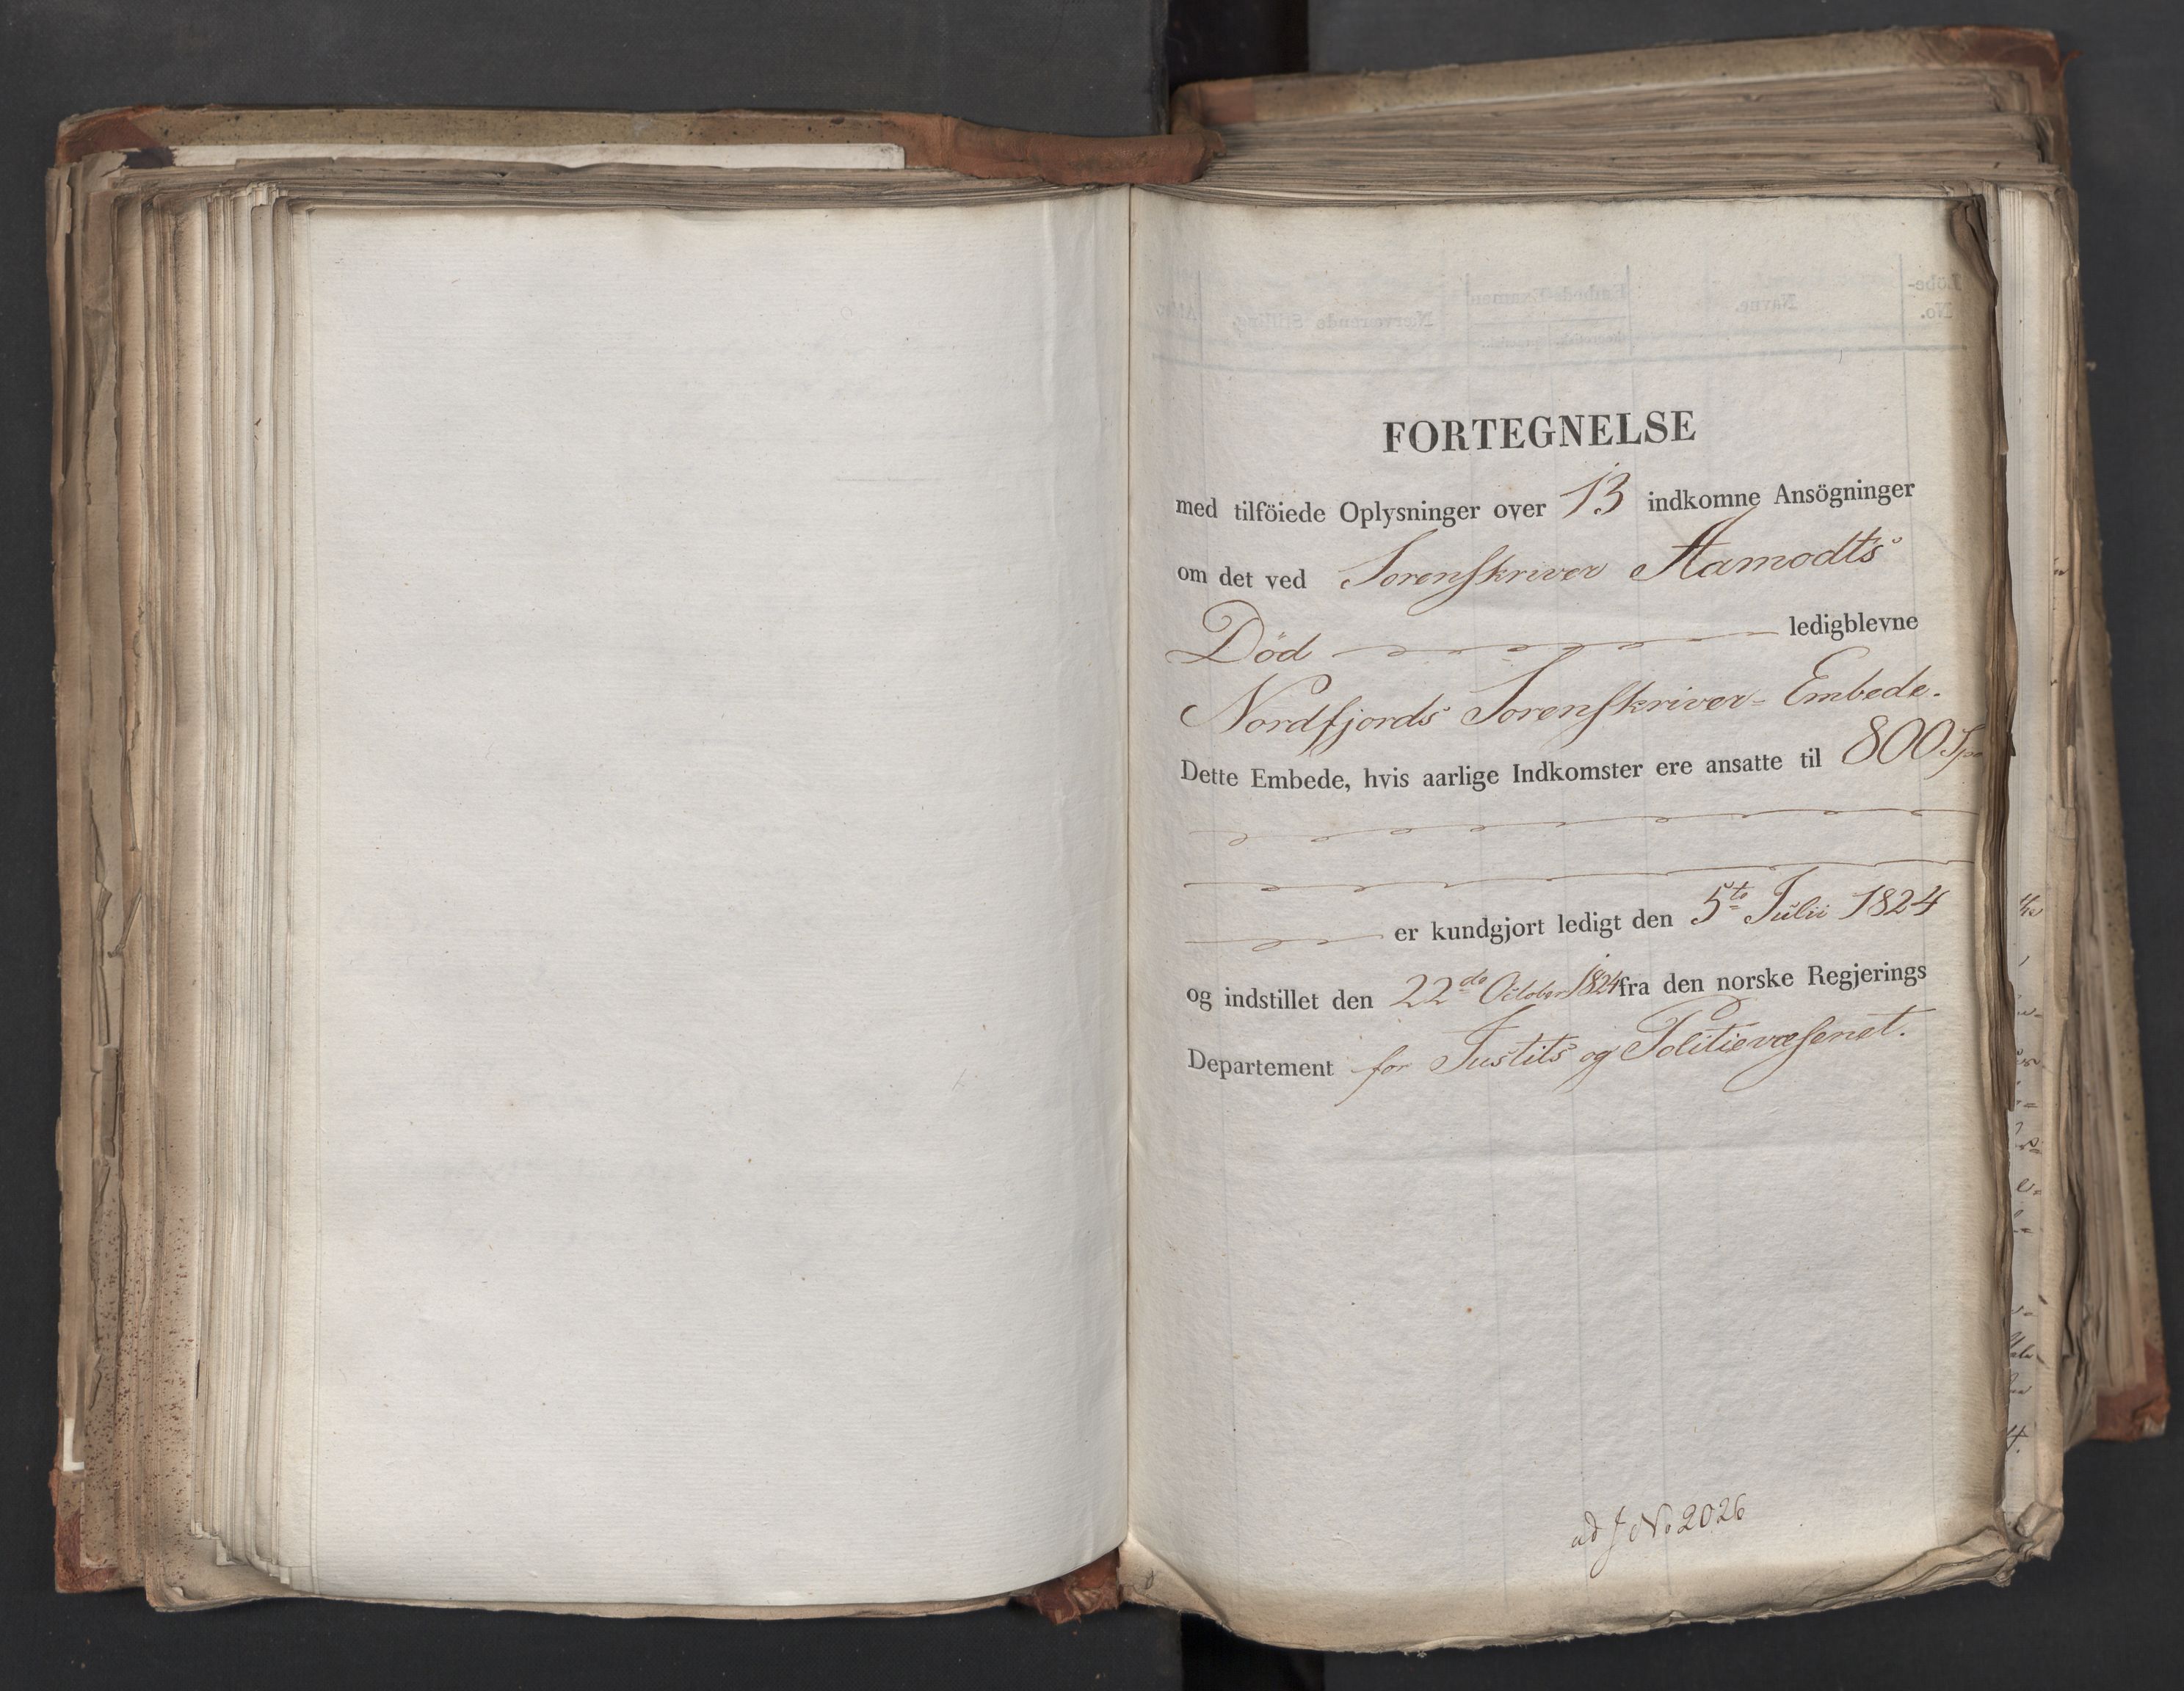 FORTEGNELSE
med tilföiede Oplysninger over 13 indkomne Ansögninger
om det ved Sorenskriver Aamodts
Død ledigblevne
Nordfjords Sorenskriver-Embede.
Dette Embede, hvis aarlige Indkomster ere ansatte til 800 Sp
er kundgjort ledigt den 5te Julii 1824
og indstillet den 22de October 1824 fra den norske Regjerings
Departement for Justits og Politievæsenet.
ad J No 2026